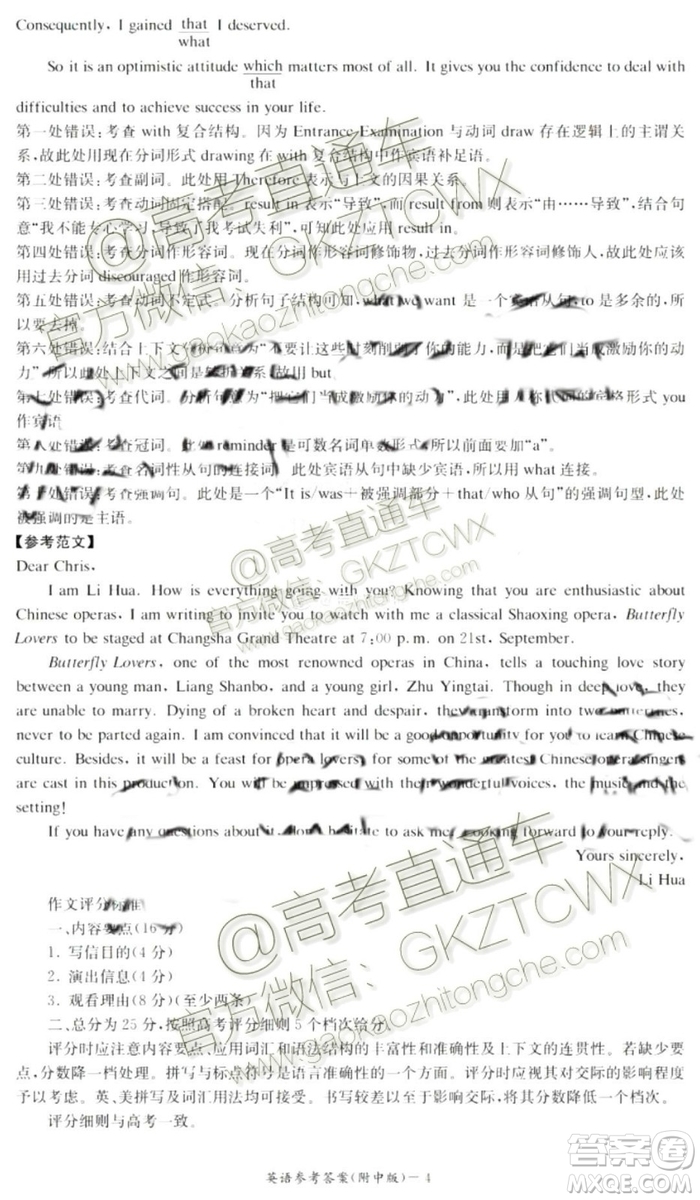 Consequently, I gained that I deserved.
what
So it is an optimistic attitude which matters most of all. It gives you the confidence to deal with
that
difficulties and to achieve success in your life.
第一处错误:考查 with 复合结构。因为 Entrance Examination 与动词 draw 存在逻辑上的主谓关
系,故此处用现在分词形式 drawing 在 with 复合结构中作宾语补足语。
第二处错误:考查副词。此处用 Therefore 表示与上文的因果关系。
第三处错误:考查动词固定搭配。result in 表示“导致”,而 result from 则表示“由……导致”,结合句
意“我不能专心学习,导致了我考试失利”,可知应用 result in。
第四处错误:考查分词作形容词。现在分词作形容词修饰物,过去分词作形容词修饰人,故此处应该
用过去分词 discouraged 作形容词。
第五处错误:考查动词不定式。分析句子结构可知,what we want 是一个宾语从句,to 是多余的,所
以要去掉。
第六处错误:结合上下文 “不要让这些时刻削弱了你的能力,而是把它们当成激励你的动
力”所以此处上下文之间是转折关系,故用 but。
第七处错误:考查代词。分析句意为“把它们当成激励你的动力”,此处用人称代词的宾格形式 you
作宾语
第八处错误:考查冠词。此处 reminder 是可数名词单数形式,所以前面要加“a”。
第九处错误:考查名词性从句的连接词。此处宾语从句中缺少宾语,所以用 what 连接。
第十处错误:考查强调句。此处是一个“It is/was+被强调部分+that/who 从句”的强调句型,此处
被强调的是主语。
【参考范文】
Dear Chris,
I am Li Hua. How is everything going with you? Knowing that you are enthusiastic about
Chinese operas, I am writing to invite you to watch with me a classical Shaoxing opera, Butterfly
Lovers to be staged at Changsha Grand Theatre at 7:00 p. m. on 21st, September.
Butterfly Lovers, one of the most renowned operas in China, tells a touching love story
between a young man, Liang Shanbo, and a young girl, Zhu Yingtai. Though in deep love, they
are unable to marry. Dying of a broken heart and despair, they transform into two butterflies,
never to be parted again. I am convinced that it will be a good opportunity for you to learn Chinese
culture. Besides, it will be a feast for opera lovers, for some of the greatest Chinese opera singers
are cast in this production. You will be impressed with their wonderful voices, the music and the
setting!
If you have any questions about it, don't hesitate to ask me. Looking forward to your reply.
Yours sincerely,
Li Hua
作文评分标准
一、内容要点(16 分)
1. 写信目的(4 分)
2. 演出信息(4 分)
3. 观看理由(8 分)(至少两条)
二、总分为 25 分,按照高考评分细则 5 个档次给分。
评分时应注意内容要点、应用词汇和语法结构的丰富性和准确性及上下文的连贯性。若缺少要
点,分数降一档处理。拼写与标点符号是语言准确性的一个方面。评分时应视其对交际的影响程度
予以考虑。英、美拼写及词汇用法均可接受。书写较差以至影响交际,将其分数降低一个档次。
评分细则与高考一致。
英语参考答案(附中版)－4
@高考直通车
官方微信:GKZTCWX
www.gaokaozhitongche.com
@高考直通车
官方微信:GKZTCWX
www.gaokaozhitongche.com
@高考直通车
官方微信:GKZTCWX
www.gaokaozhitongche.com
作业精灵